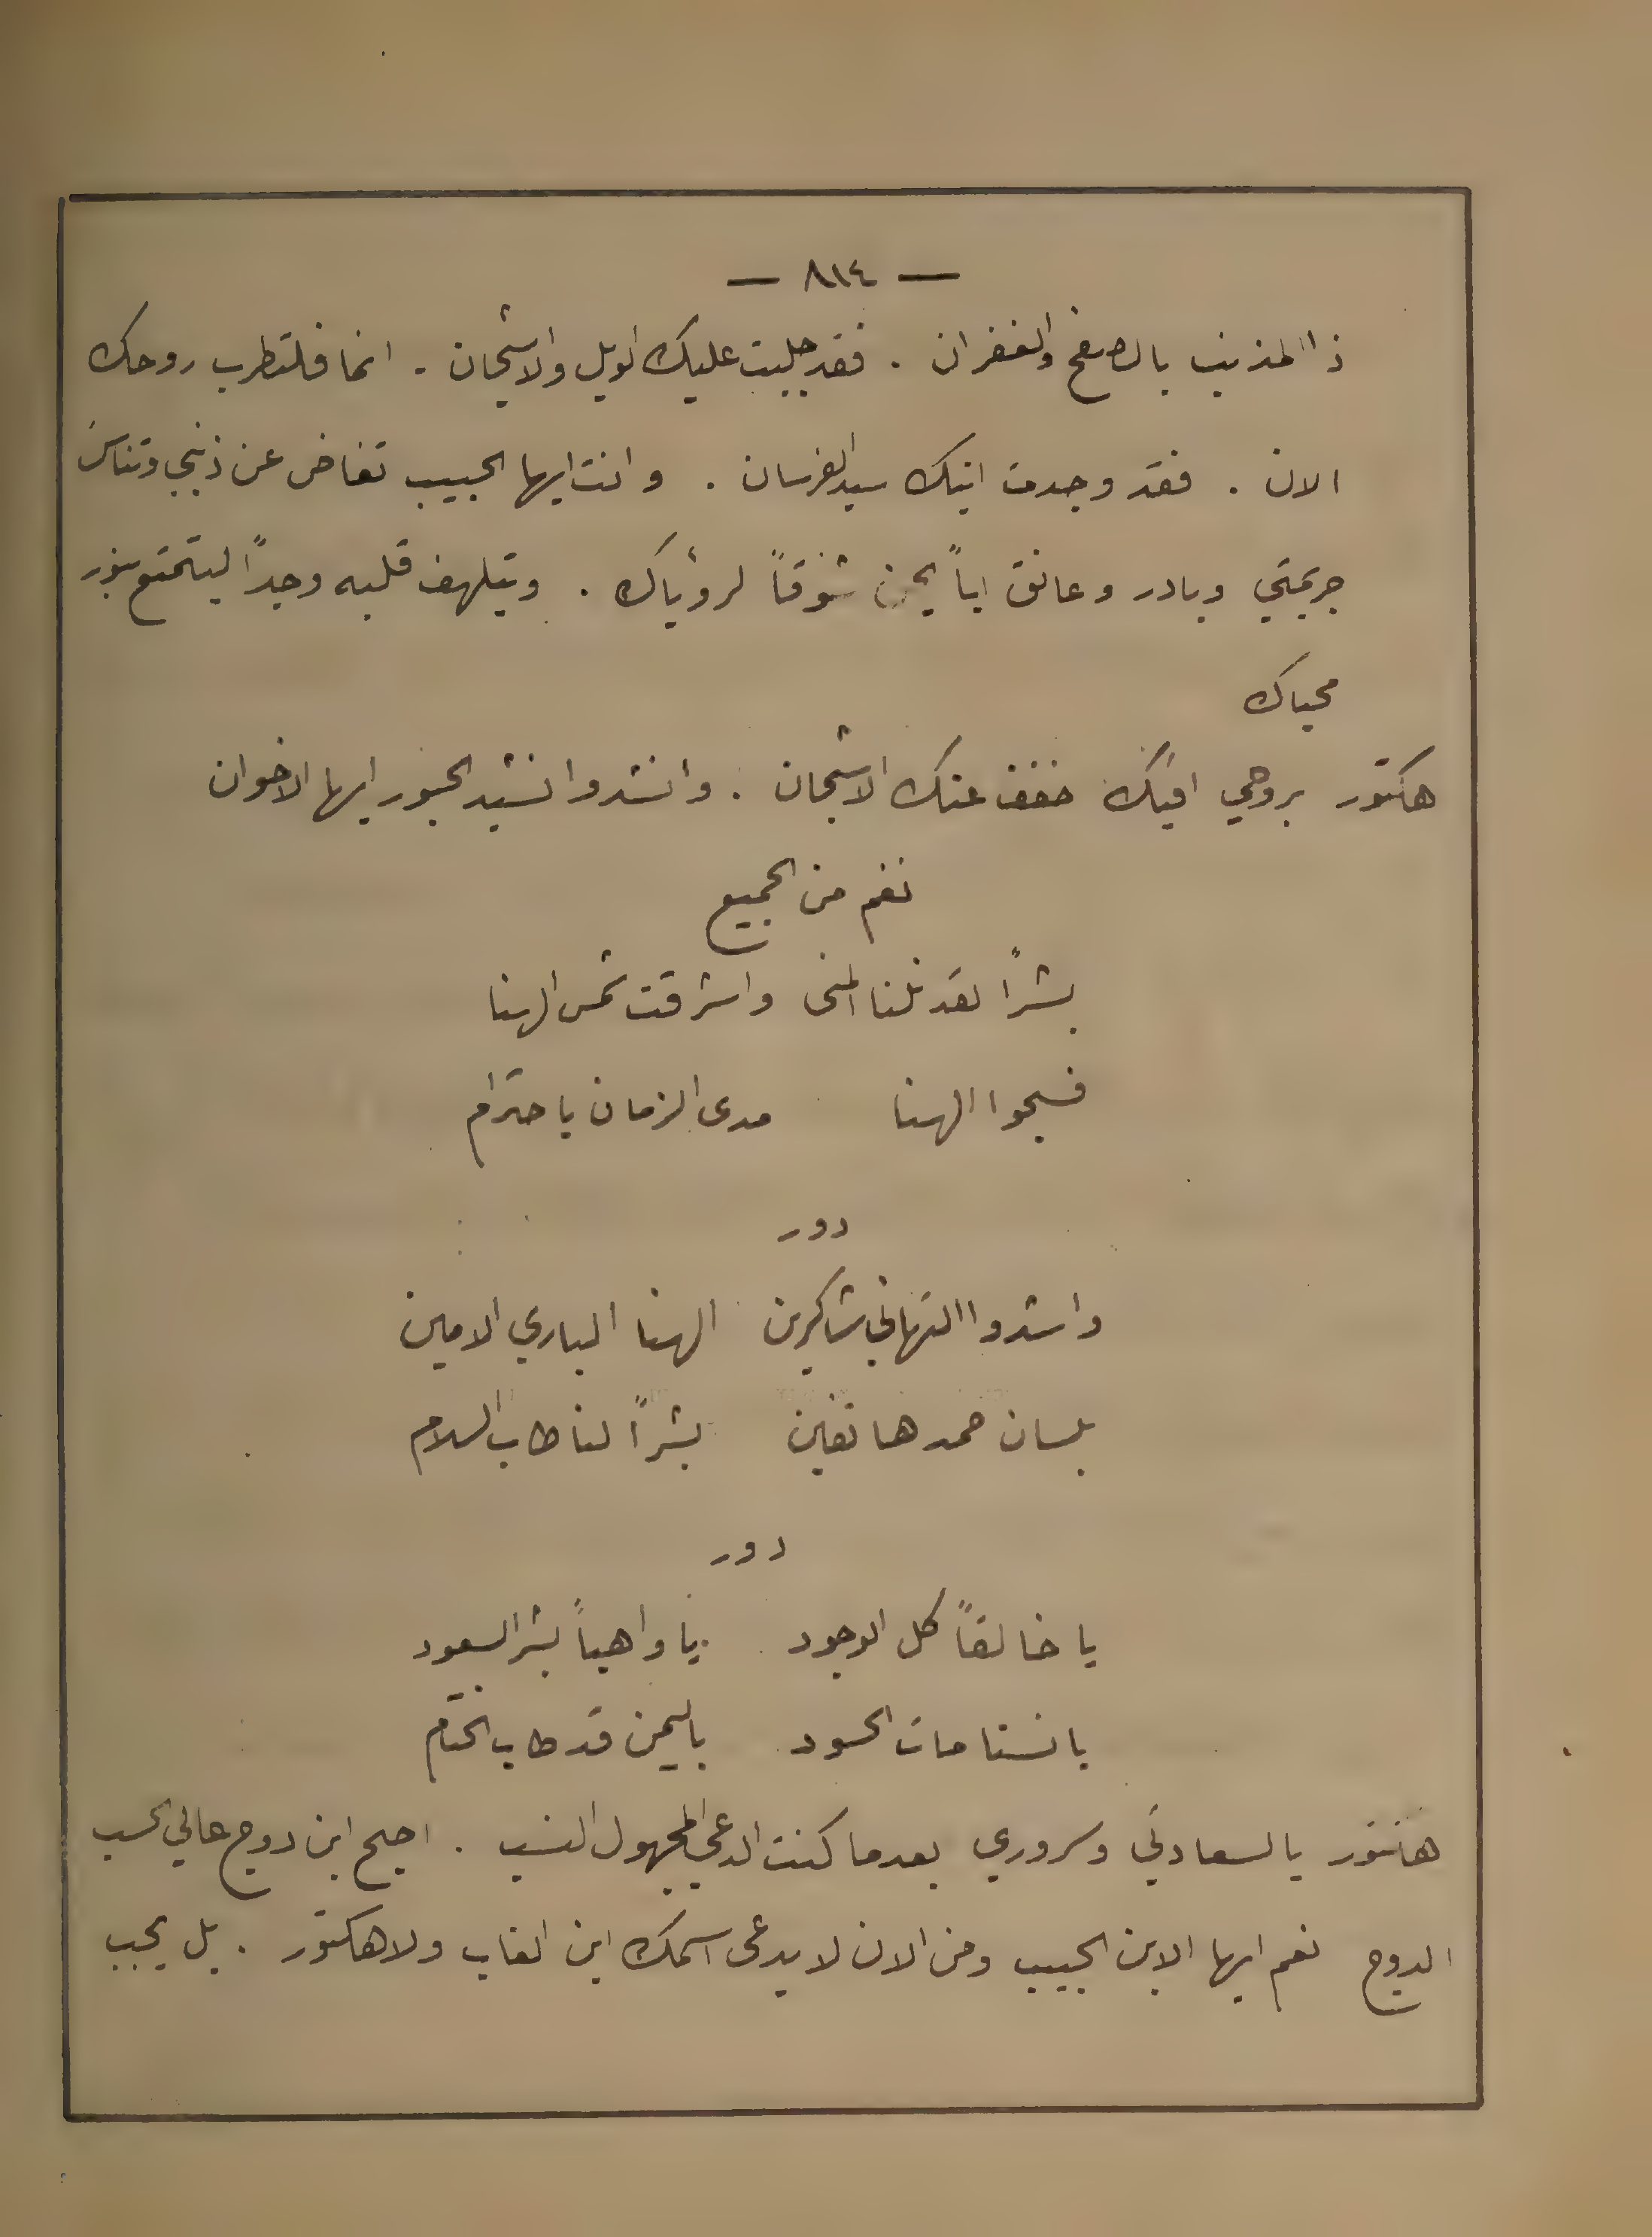 — ٨١٤ —
ذا المذنب بالصفح والغفران . فقد جلبت عليك الويل والاشجان . انما فلتطرب روحك
الان . فقد وجدت ابنك سيد الفرسان . وانت ايها الحبيب تغاض عن ذنبي وتناس
جريمتي وبادر وعانق اباً يحن شوقاً لرؤياك . ويتلهف قلبه وجداً ليتمتع بنور
محياك
هكتور بروحي افيك خفف عنك الاشجان . وانشدوا نشيد الحبور ايها الاخوان
نغم من الجميع
بشراً لقد نلنا المنى واشرقت شمس الهنا
فسبحوا الهنا مدى الزمان باحترام
دور
واشدوا التهاني شاكرين الهنا الباري الامين
بلسان حمد هاتفين بشراً لنا طاب السلام
دور
يا خالقاً كل الوجود يا واهباً بشر السعود
بانسنا مات الحسود باليمن قد طاب الختام
هكتور يا لسعادتي وسروري بعدما كنت الدعي المجهول النسب . اصبح ابن دوج عالي الحسب
الدوج نعم ايها الابن الحبيب ومن الان لا يدعى اسمك ابن الغاب ولا هكتور . بل يجب